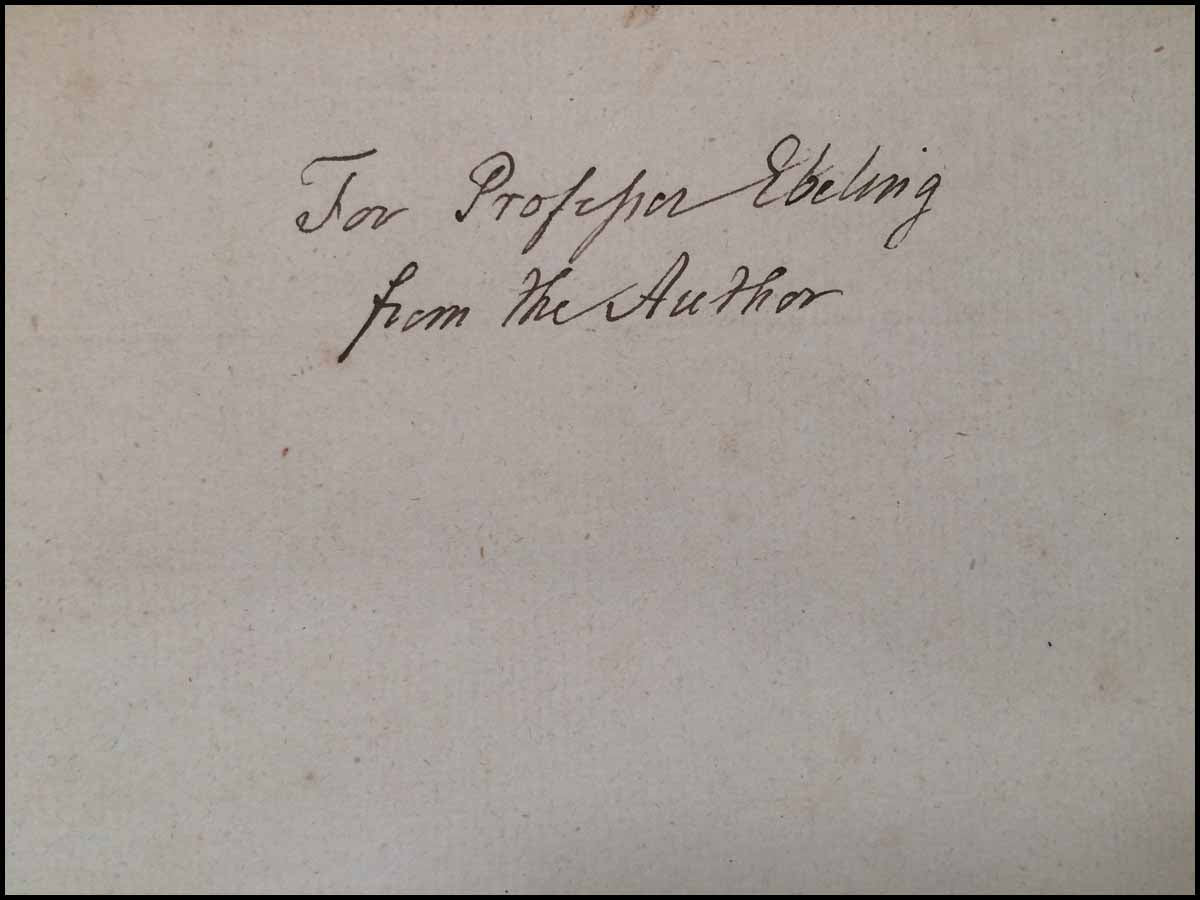 For Professor Ebeling
from the Author